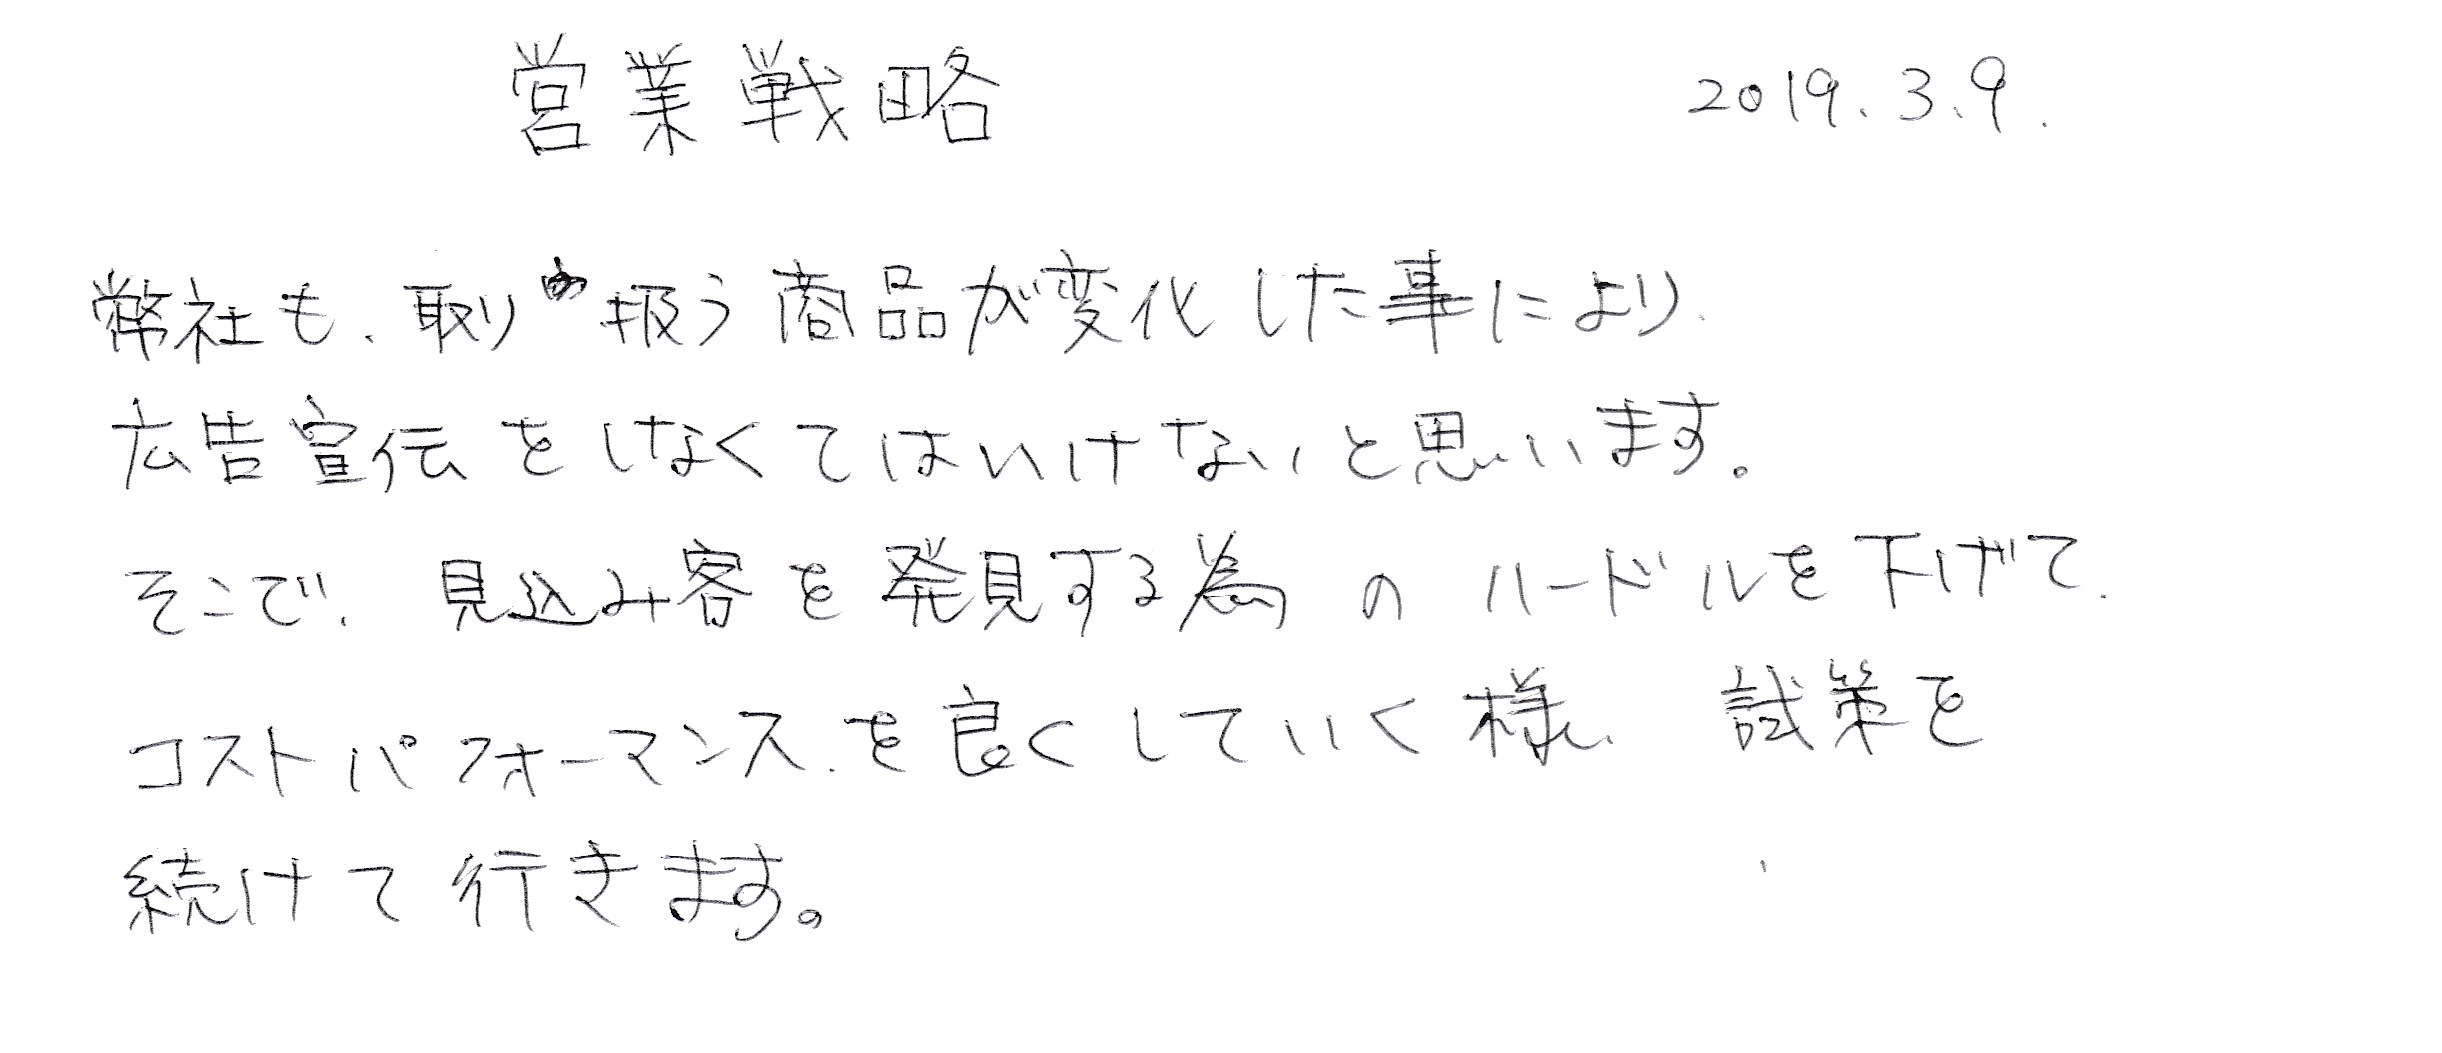 営業戦略 2019.3.9.
弊社も、取り扱う商品が変化した事により、
広告宣伝をしなくてはいけないと思います。
そこで、見込み客を発見する為のハードルを下げて、
コストパフォーマンスを良くしていく様、試策を
続けて行きます。